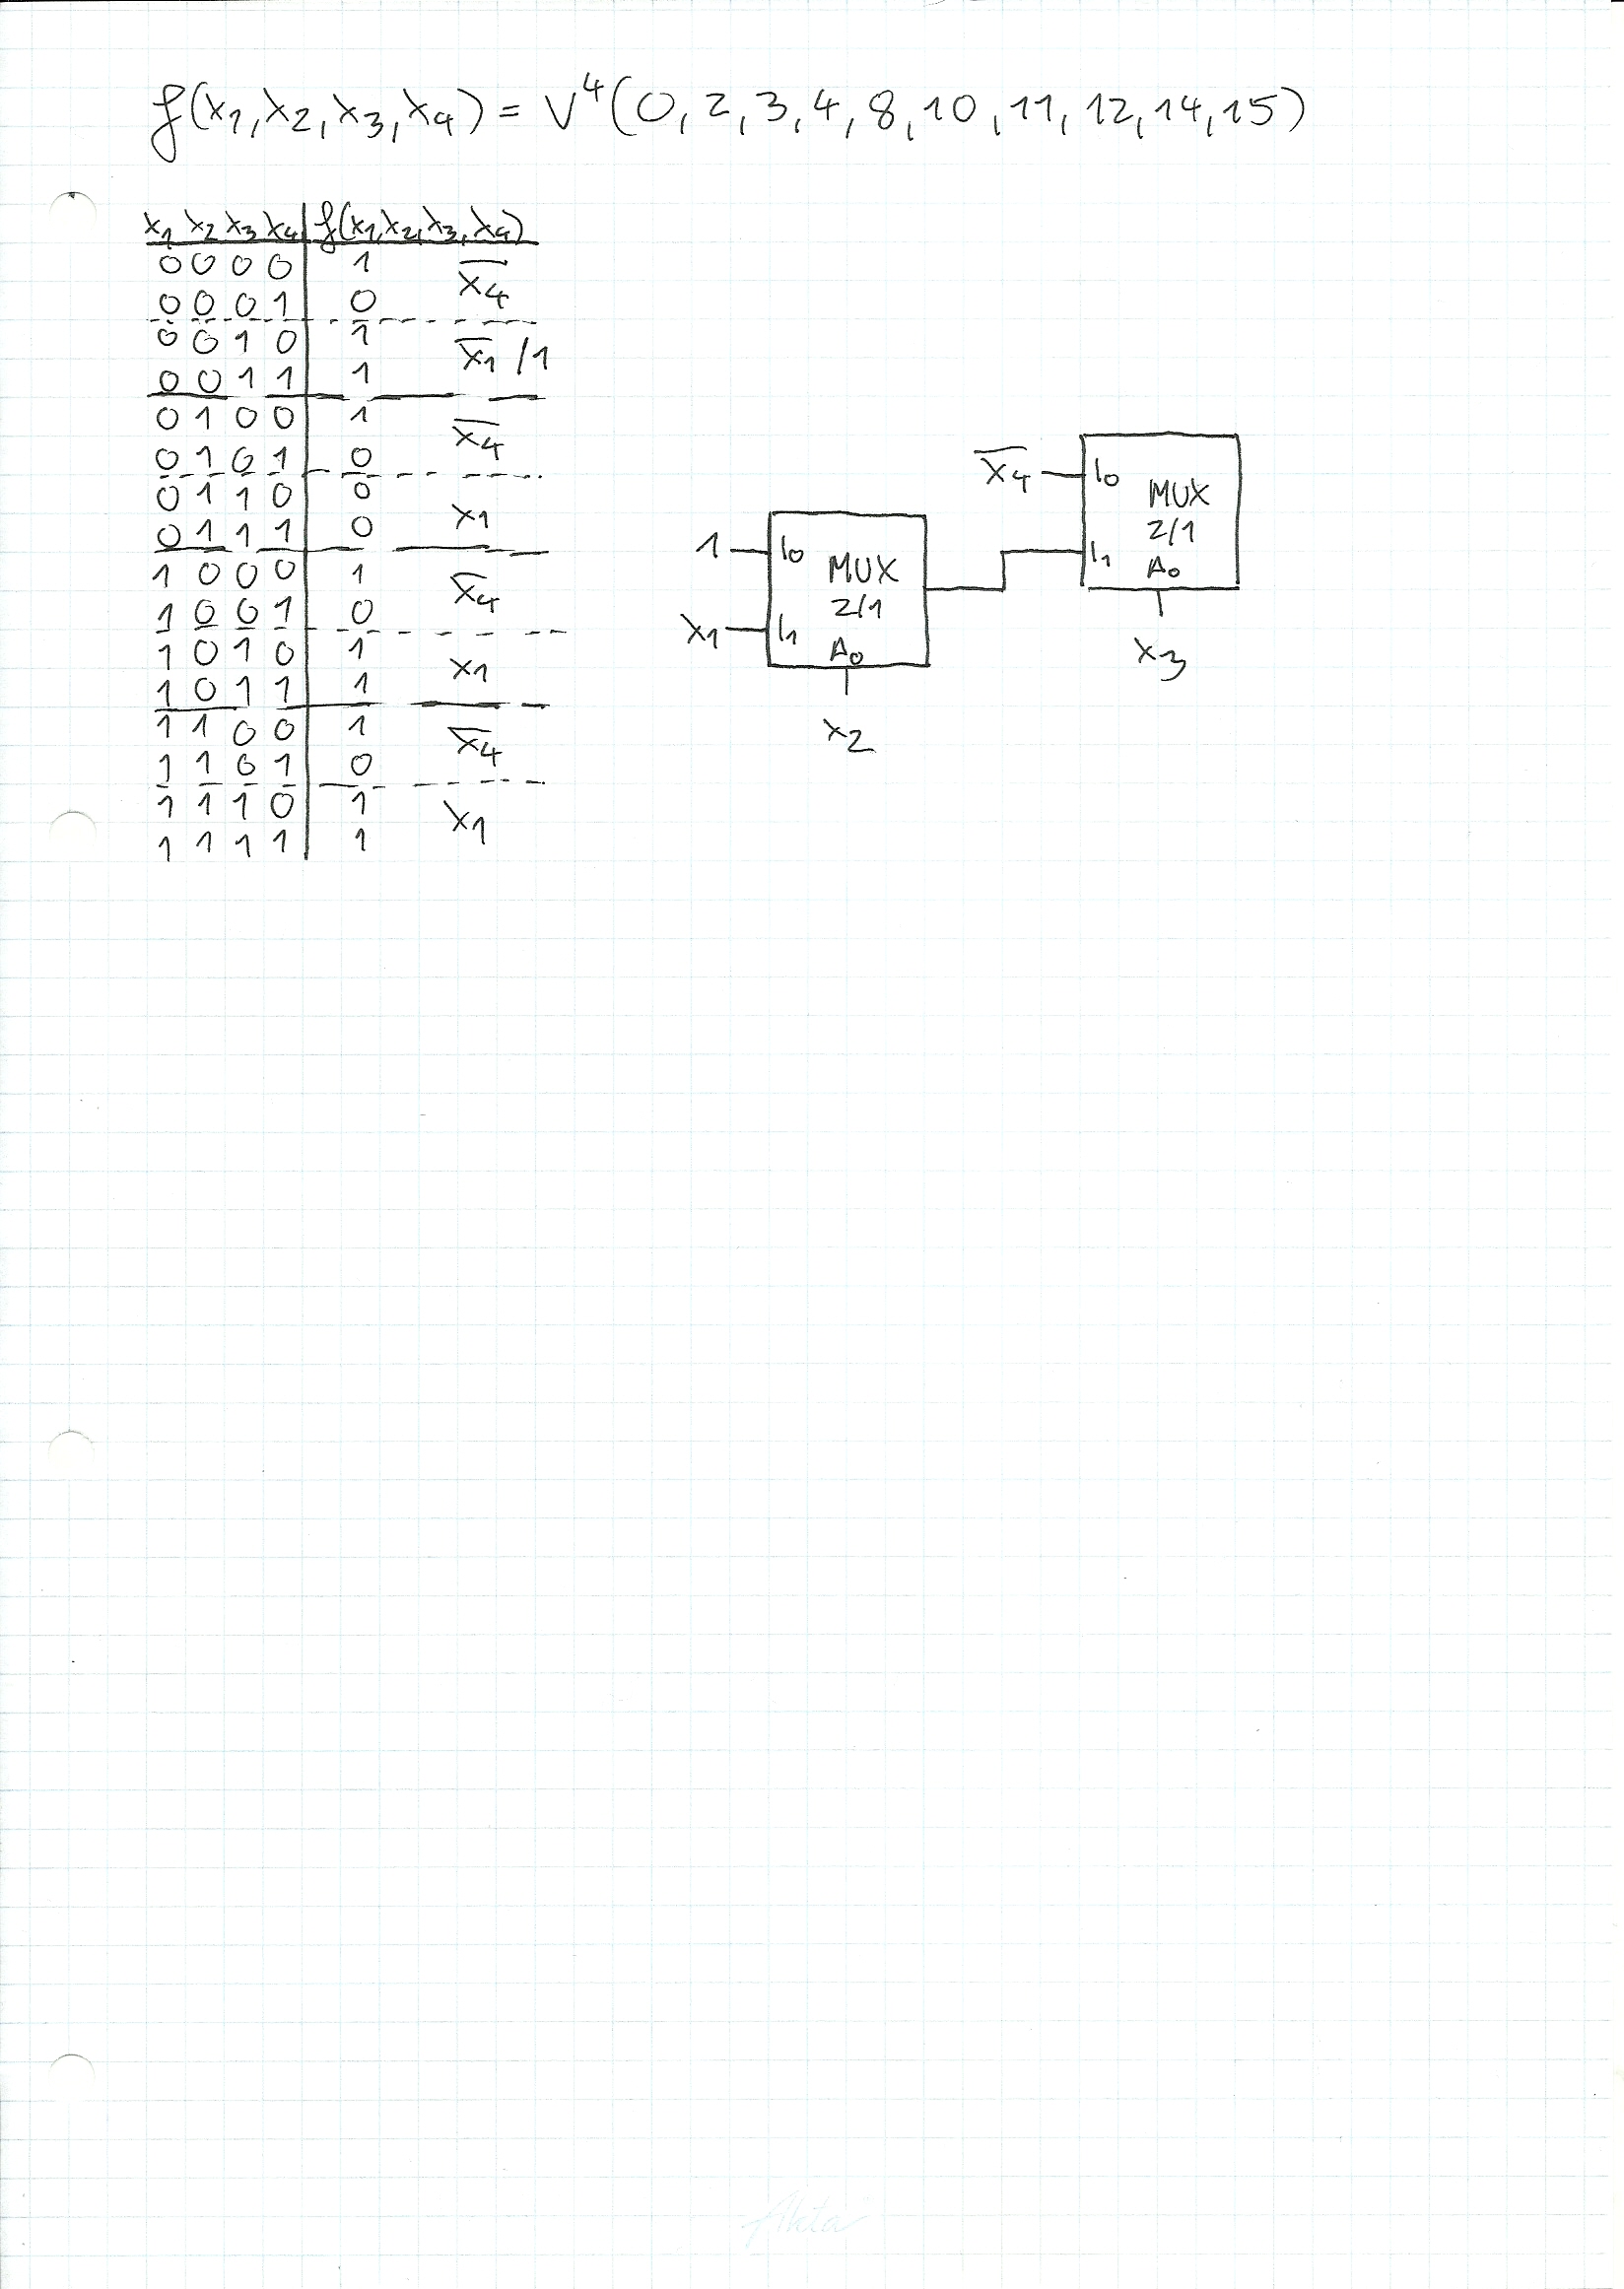 f(x₁,x₂,x₃,x₄) = V⁴(0,2,3,4,8,10,11,12,14,15)
x₁ x₂ x₃ x₄ f(x₁,x₂,x₃,x₄)
0 0 0 0 1 x̅₄
0 0 0 1 0
0 0 1 0 1 x̅₁ /1
0 0 1 1 1
0 1 0 0 1 x̅₄
0 1 0 1 0
0 1 1 0 0 x₁
0 1 1 1 0
1 0 0 0 1 x̅₄
1 0 0 1 0
1 0 1 0 1 x₁
1 0 1 1 1
1 1 0 0 1 x̅₄
1 1 0 1 0
1 1 1 0 1 x₁
1 1 1 1 1
1 I₀ MUX
2/1
x₁ I₁ A₀
x₂
x̅₄ I₀ MUX
2/1
I₁ A₀
x₃
Akta